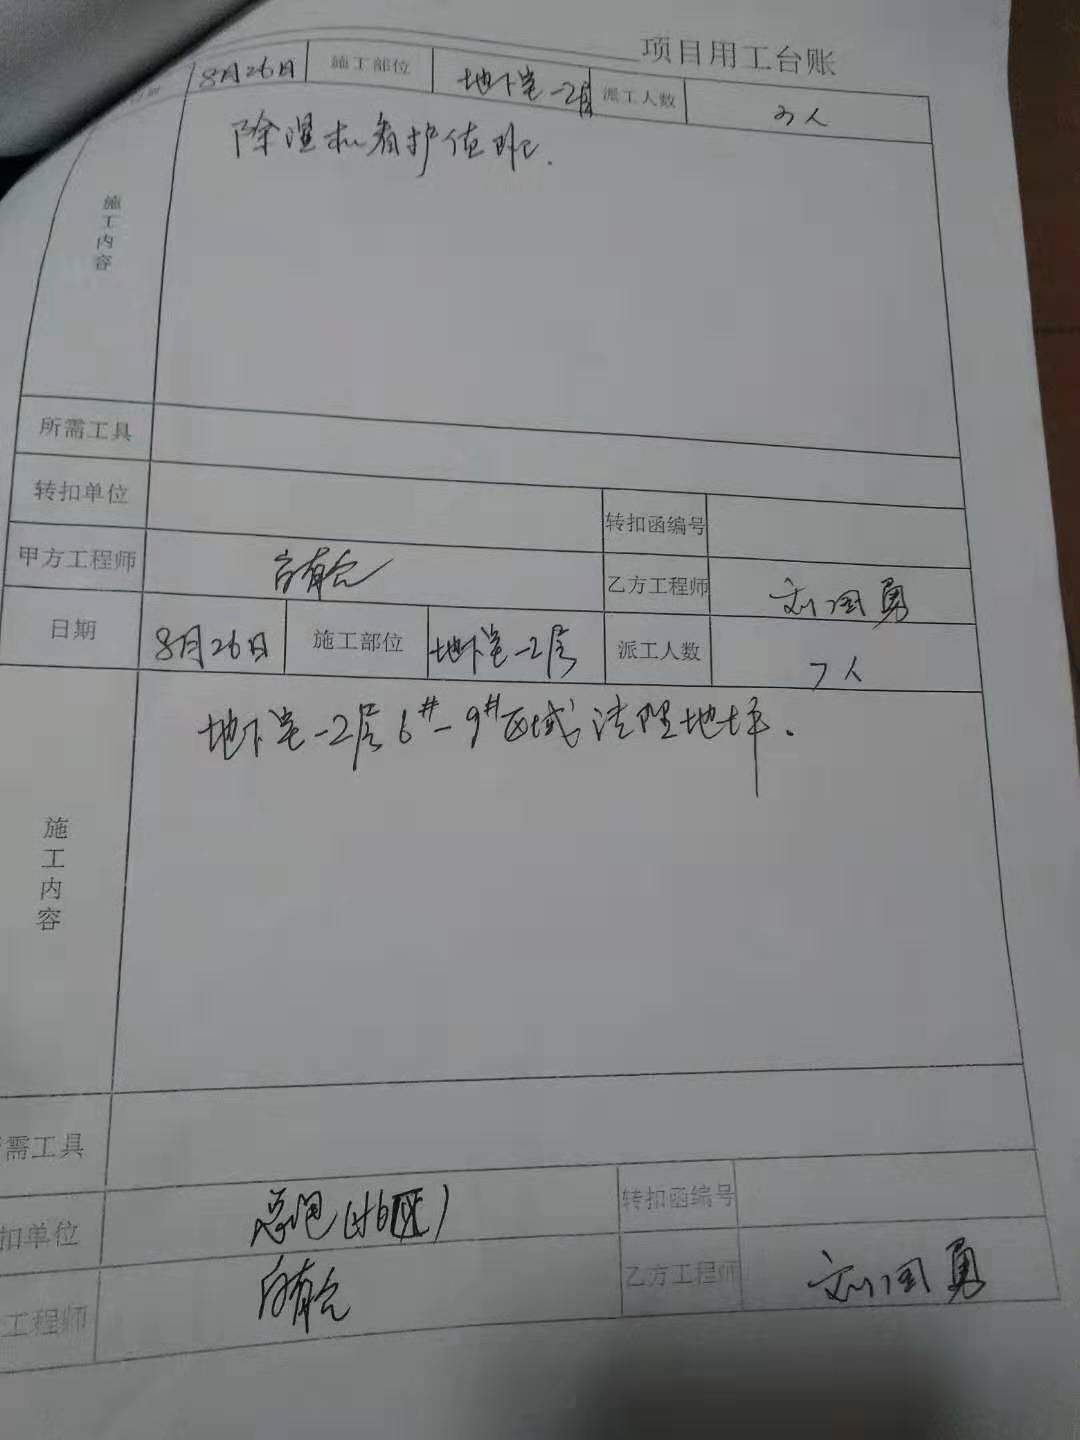 项目用工台账
8月26日 施工部位 地下室-2层 派工人数 2人
施工内容 除湿机看护值班.
所需工具
转扣单位 转扣函编号
甲方工程师 乙方工程师 刘国勇
日期 8月26日 施工部位 地下室-2层 派工人数 7人
施工内容 地下室-2层6#-9#区域清理地坪.
需工具
扣单位 总包 转扣函编号
工程师 乙方工程师 刘国勇